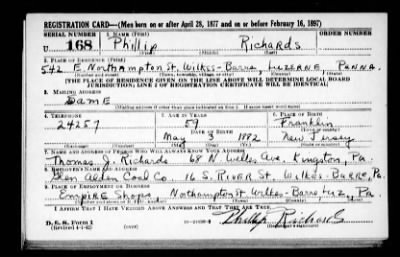 REGISTRATION CARD—(Men born on or after April 28, 1877 and on or before February 16, 1897)
SERIAL NUMBER 1. NAME (Print) ORDER NUMBER
U 168 Phillip Richards
2. PLACE OF RESIDENCE (Print)
542 E. Northampton St. Wilkes-Barre, Luzerne, Penna.
[THE PLACE OF RESIDENCE GIVEN ON THE LINE ABOVE WILL DETERMINE LOCAL BOARD
JURISDICTION; LINE 2 OF REGISTRATION CERTIFICATE WILL BE IDENTICAL]
3. MAILING ADDRESS
Same
4. TELEPHONE 5. AGE IN YEARS 6. PLACE OF BIRTH
24257 59 Franklin
DATE OF BIRTH
May 3 1882 New Jersey
7. NAME AND ADDRESS OF PERSON WHO WILL ALWAYS KNOW YOUR ADDRESS
Thomas J. Richards 68 N. Welles Ave. Kingston, Pa.
8. EMPLOYER'S NAME AND ADDRESS
Glen Alden Coal Co. 16 S. River St. Wilkes-Barre, Pa.
9. PLACE OF EMPLOYMENT OR BUSINESS
Empire Shops Northampton St. Wilkes-Barre, Luz, Pa.
I AFFIRM THAT I HAVE VERIFIED ABOVE ANSWERS AND THAT THEY ARE TRUE.
D. S. S. Form 1
(Revised 4-1-42) (over)
Phillip Richards